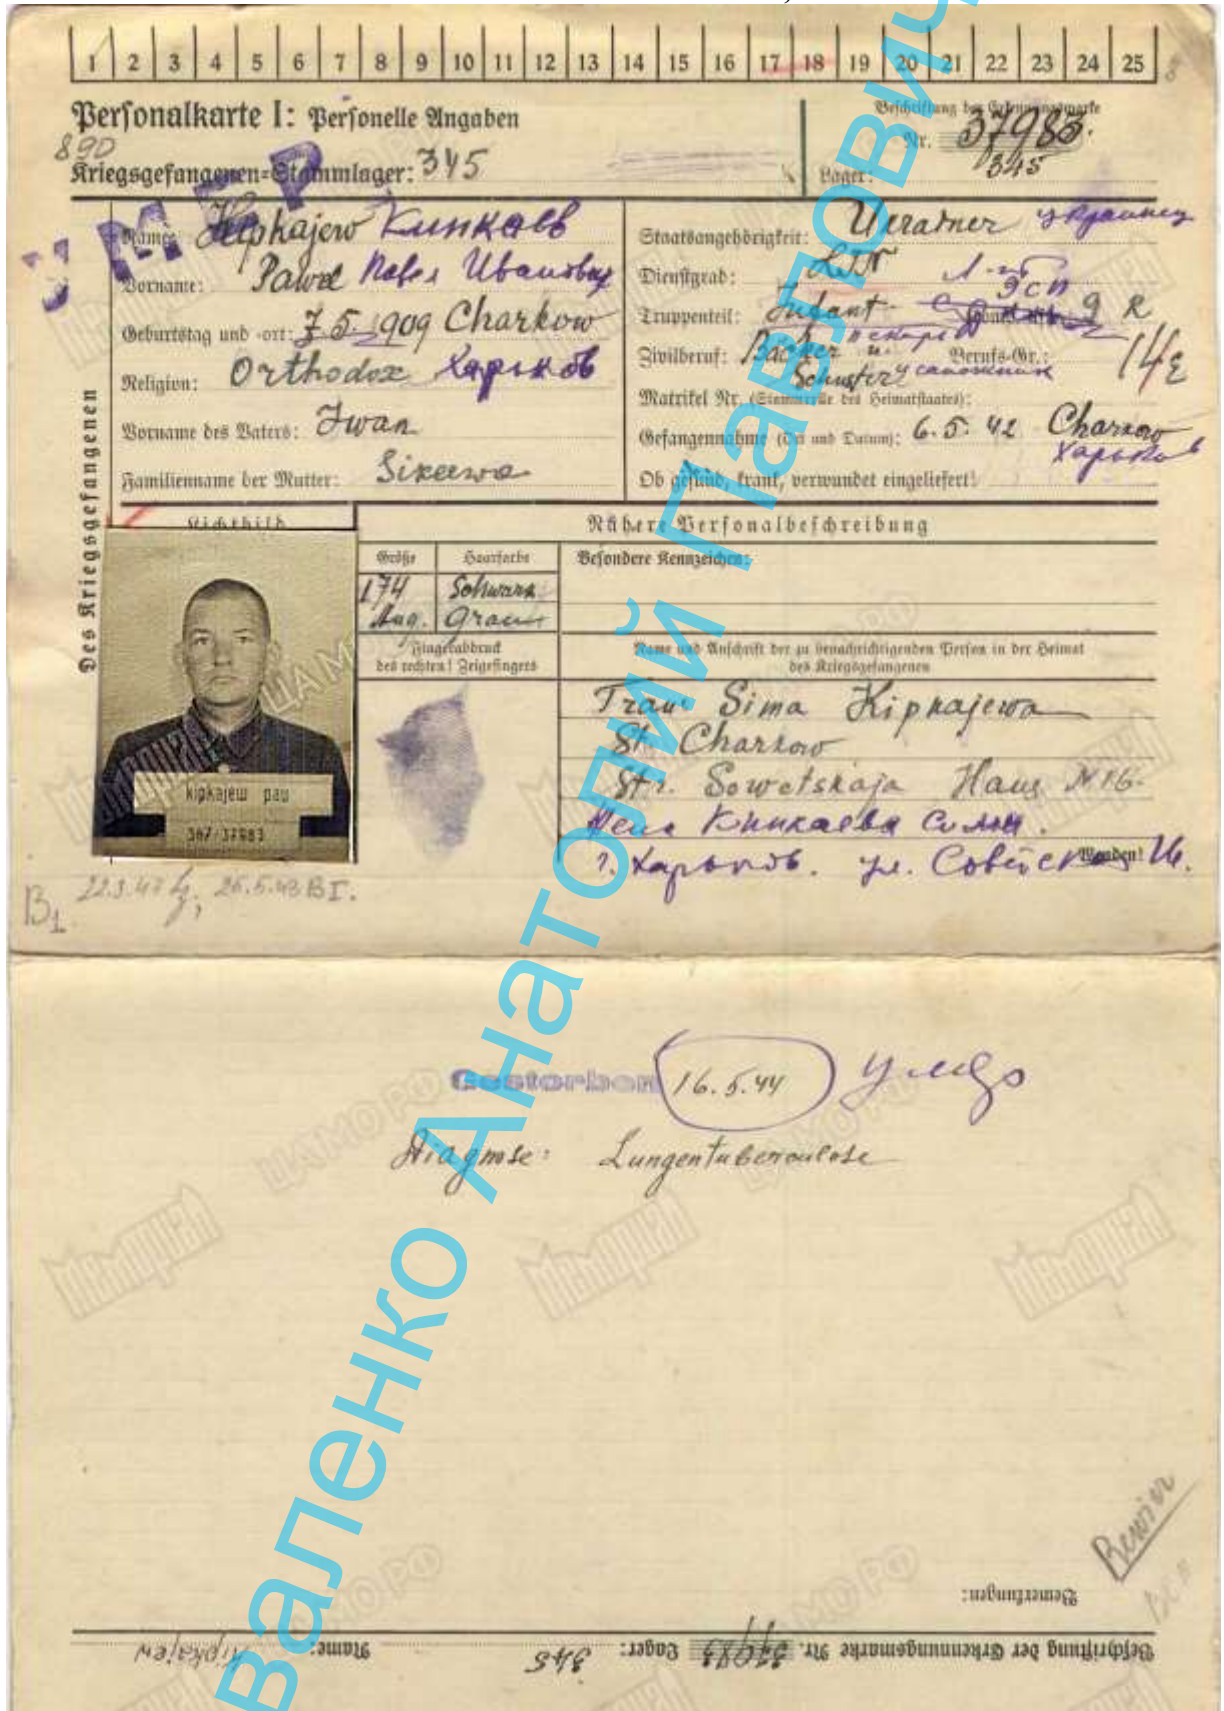 1 2 3 4 5 6 7 8 9 10 11 12 13 14 15 16 17 18 19 20 21 22 23 24 25
Personalkarte I: Personelle Angaben
Beschriftung der Erkennungsmarke
Nr. 37983.
890
Kriegsgefangenen=Stammlager: 345
Lager: 345
УМЕР
Name: Kipkajew Кипкаев
Vorname: Pawel Павел Иванович
Geburtstag und -ort: 7.5.909 Charkow
Religion: Orthodox Харьков
Vorname des Vaters: Iwan
Familienname der Mutter:
Staatsangehörigkeit: Ukrainer украинец
Dienstgrad:
Truppenteil: Infant. 9 R
Zivilberuf: Bäcker u. Berufs-Gr.: 14
Schuster сапожник
Matrikel Nr. (Stammrolle des Heimatstaates):
Gefangennahme (Ort und Datum): 6.5.42 Charkow
Харьков
Ob gesund, krank, verwundet eingeliefert:
Des Kriegsgefangenen
Lichtbild
Nähere Personalbeschreibung
Größe Haarfarbe Besondere Kennzeichen:
174 Schwarz
Aug. Grau
Fingerabdruck
des rechten! Zeigefingers
Name und Anschrift der zu benachrichtigenden Person in der Heimat
des Kriegsgefangenen
Frau Sima Kipkajewa
St. Charkow
Str. Sowetskaja Haus N 16.
Жена Кипкаева Сима.
г. Харьков. ул. Советская 16.
Wenden!
kipkajew pau
367-37983
B1
26.5.43 B I.
Gestorben 16.5.44 умер
Diagnose: Lungentuberculose
Bemerkungen:
Beschriftung der Erkennungsmarke Nr. 37983 Lager: 345 Name: Kipkajew
Валенко Анатолий Павлович
Мемориал
ЦАМО РФ